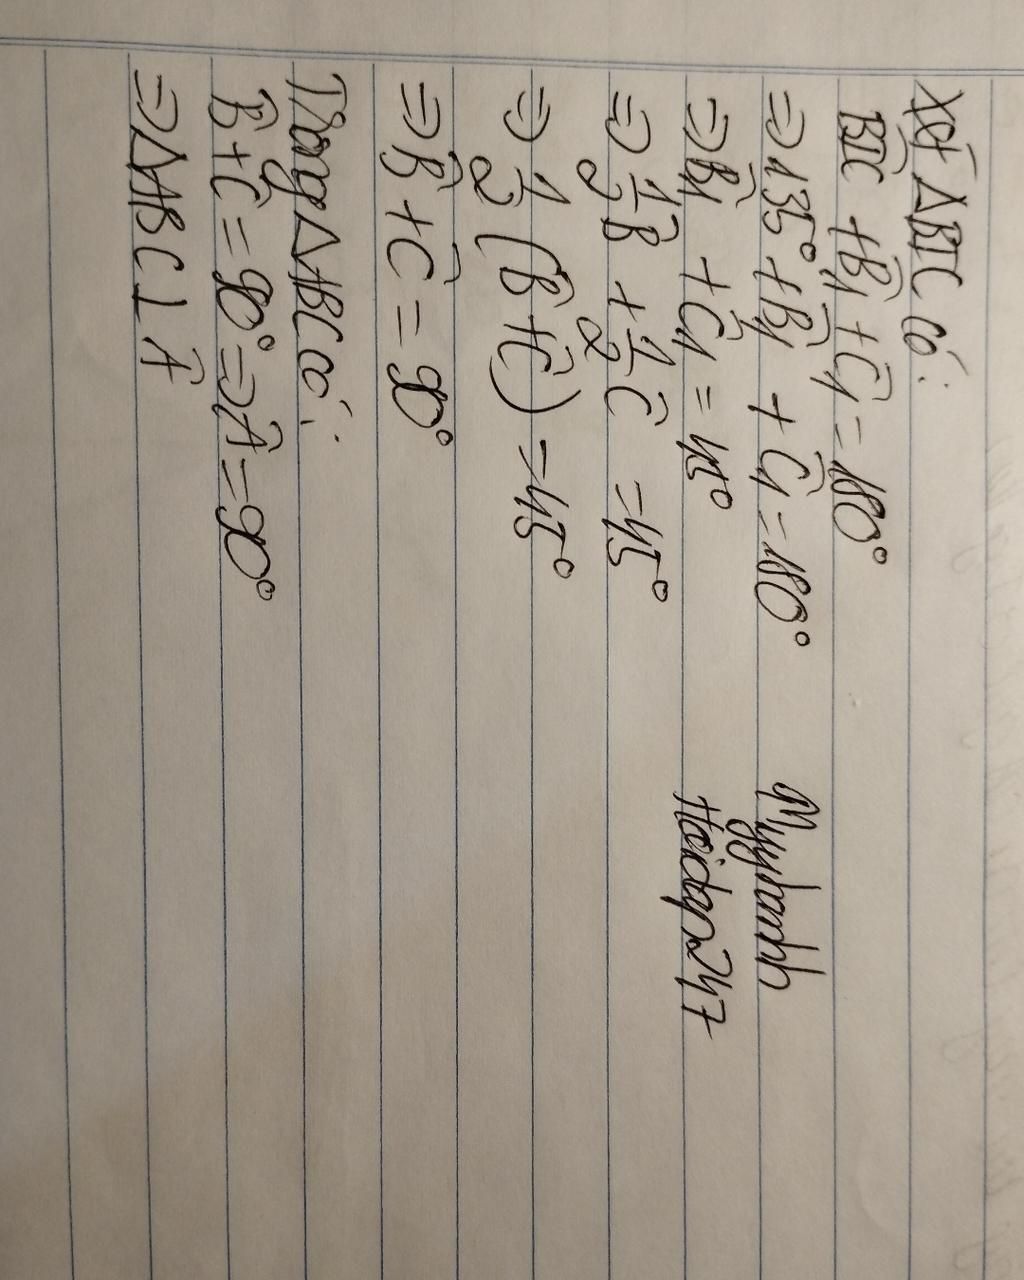 Xét ΔBIC có:
B̂IC + B̂₁ + Ĉ₁ = 180°
⇒ 135° + B̂₁ + Ĉ₁ = 180°
⇒ B̂₁ + Ĉ₁ = 45°
⇒ 1/2 B̂ + 1/2 Ĉ = 45°
⇒ 1/2 (B̂ + Ĉ) = 45°
⇒ B̂ + Ĉ = 90°
Trong ΔABC có:
B̂ + Ĉ = 90° ⇒ Â = 90°
⇒ ΔABC ⊥ Â
Hoidap247